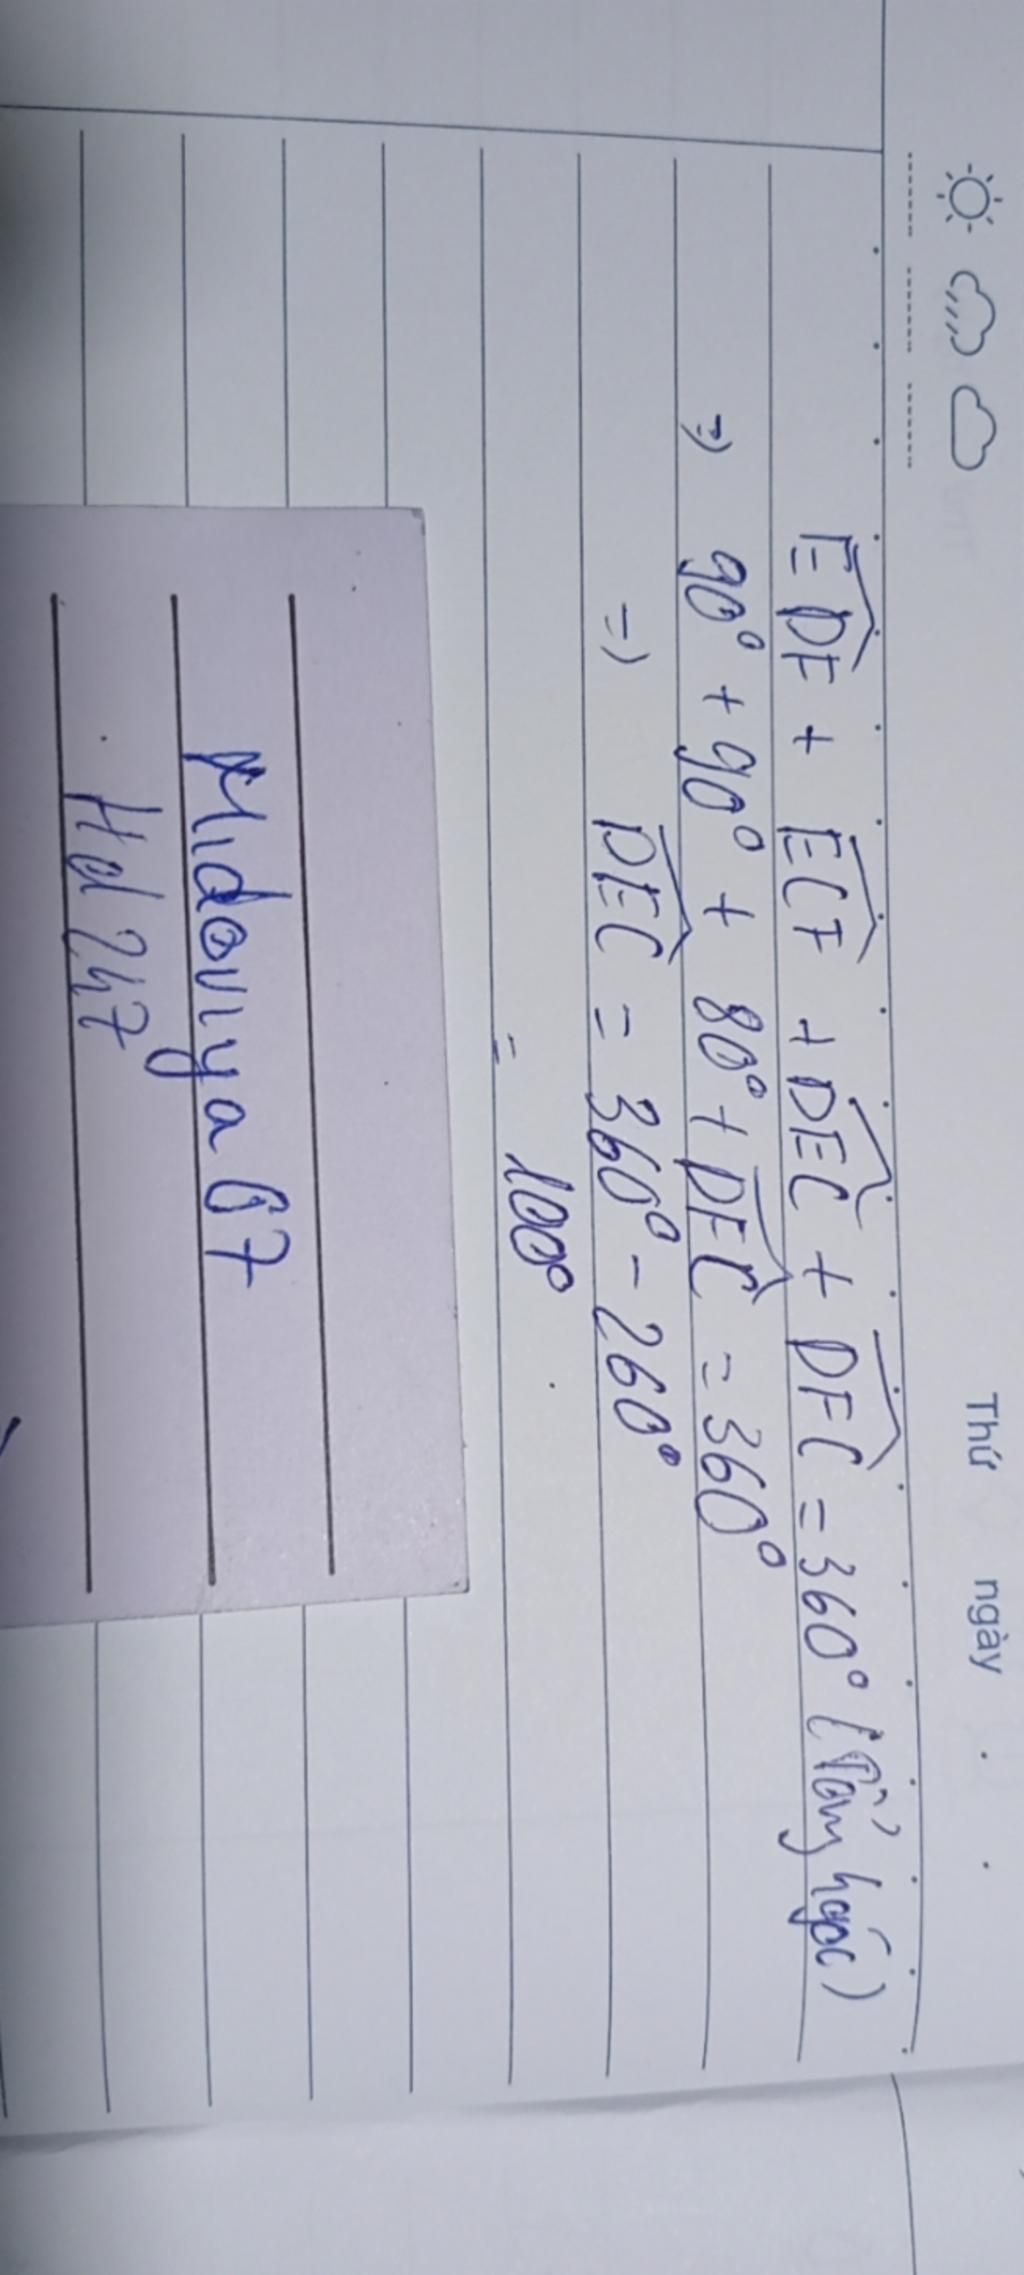 Thứ ngày
EDF + ECF + DEC + DFC = 360° (Tổng 4 góc)
=> 90° + 90° + 80° + DEC = 360°
=> DEC = 360° - 260°
= 100°
Midoriya67
Hd247